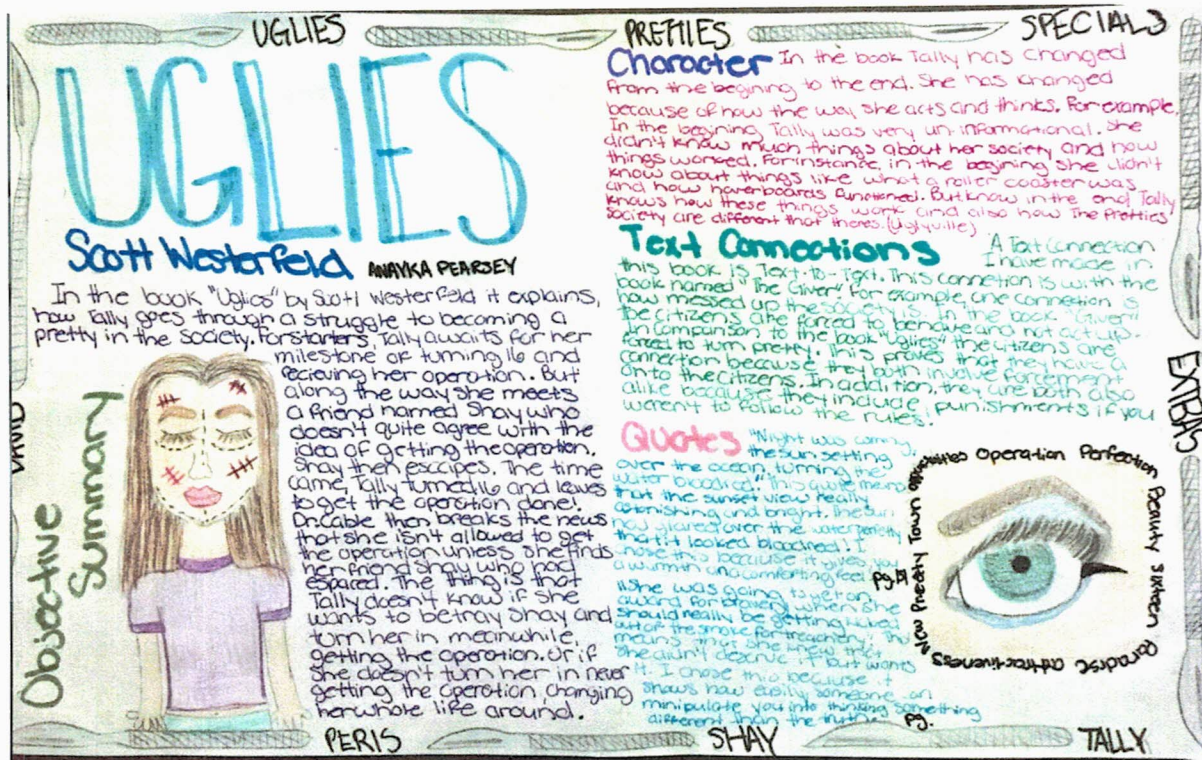 UGLIES
PRETTIES
SPECIALS
UGLIES
Scott Westerfeld
ANAYKA PEARSEY
In the book "Uglies" by Scott Westerfeld it explains,
how Tally goes through a struggle to becoming a
pretty in the society. Forstarters, Tally awaits for her
milestone of turning 16 and
recieving her operation. But
along the way she meets
a friend named Shay who
doesn't quite agree with the
idea of getting the operation.
Shay then esccipes. The time
came, Tally turned 16 and leaves
to get the operation done.
Dr. Cable then breaks the news
that she isn't allowed to get
the operation unless she finds
her friend Shay who had
espaced. The thing is that
Tally doesn't know if she
wants to betray Shay and
turn her in meanwhile,
getting the operation. Or if
she doesn't turn her in never
getting the operation, changing
her whole life around.
Objective
Summary
Character In the book Tally has changed
from the begining to the end. She has changed
because of how the way she acts and thinks. For example,
In the begining Tally was very un-informational. She
didn't know much things about her society and how
things worked. For instance, in the begining she didn't
know about things like what a roller coaster was
and how hoverboards functioned. But know in the end Tally
knows how these things work and also how The Pretties
society are different that theres. (Uglyville)
Text Connections A Text Connection
I have made in
this book is Text-To-Text. This connection is with the
book named "The Giver". For example, one connection is
how messed up the society is. In the book "Giver"
the citizens are forced to be and not act up.
In comparison to the book "Uglies" the citizens are
forced to turn pretty. This proves that they have a
connection because they both involve forcement
onto the citizens. In addition, they are both also
alike because they include punishments if you
weren't to follow the rules.
Quotes "Night was coming,
the sun setting
over the ocean, turning the
water bloodred." This quote means
that the sunset view really
astonishing and bright. The sun
now glared over the water perfectly
that it looked bloodred! I
chose this because it gives you
a warmth and comforting feel
pg.
"She was going to get an
award for bravery when she
should really be getting kicked
out of the smoke for treachery." This
means that she knew that
she didn't deserve it but wants
it. I chose this because it
shows how easily someone can
minipulate you into thinking something
different than the truth.
pg.
New Preety Town
Operation
Perfection
Beauty
Sixteen
Paradise
Attractiveness
EXTRAS
DAVID
PERIS
SHAY
TALLY